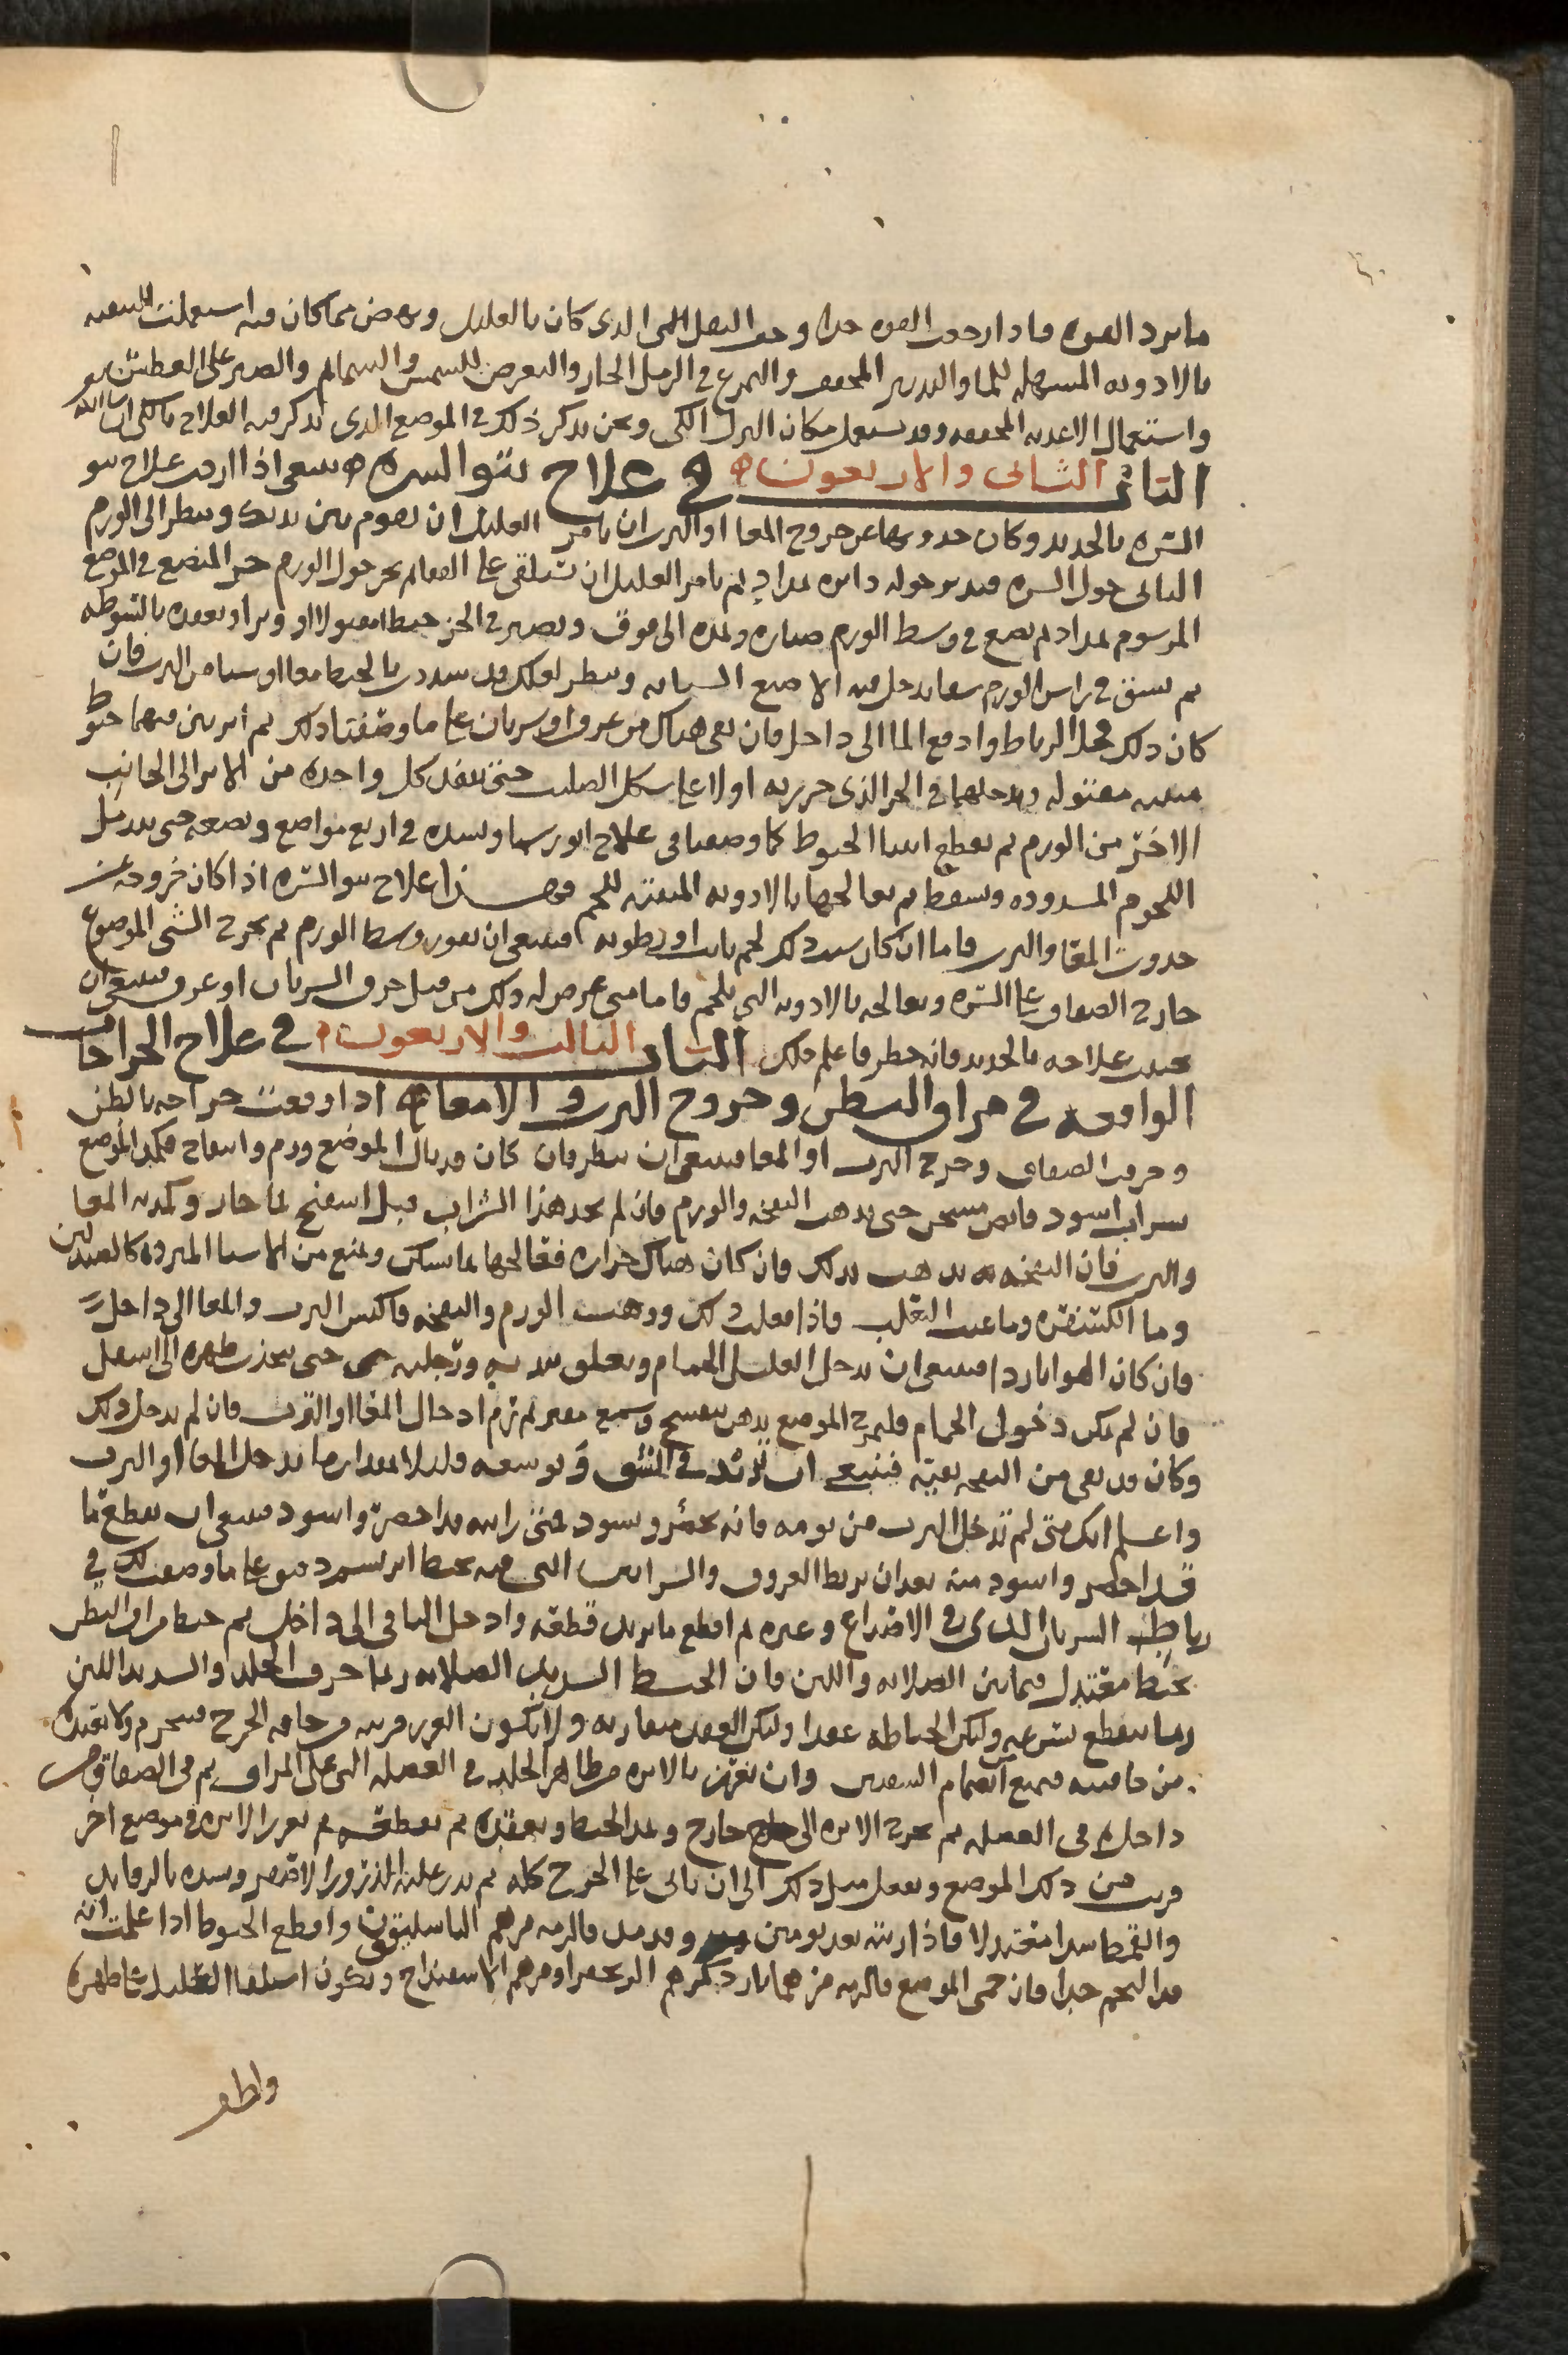 ما يرد القوه فاذا رجعت القوه جدا وخف الثقل الذى كان بالعليل ونهض مما كان فيه استعملت للبقيه
بالادويه المسهله للما والتدبير المجفف والتمرغ فى الرمل الحار والتعرض للشمس والسمايم والصبر على العطش
واستعمال الاغذيه المجففه وقد يستعمل مكان البزل الكى ونحن نذكر ذلك فى الموضع الذى نذكر فيه العلاج بالكى ان شا الله
الباب الثانى والاربعون فى علاج نتو السره ينبغى اذا اردت علاج نتو
السره بالحديد وكان حدوثها عن خروج المعا او الثرب ان تامر العليل ان يقوم بين يديك وينظر الى الورم
الناتى حول السره فتدير حوله دايره بمداد ثم تامر العليل ان يستلقى على القفا ثم تحز حول الورم حز المبضع فى الموضع
المرسوم بمداد ثم تضع فى وسط الورم صناره وتمده الى فوق وتصير فى الحز خيطا مفتولا او وترا وتعقده بانشوطه
ثم تشق فى راس الورم شقا تدخل فيه الاصبع السبابه وتنظر لعلك قد شددت بالخيط معا او شيا من الثرب فان
كان ذلك فحل الرباط وادفع المعا الى داخل فان بقى هناك من عروق او شريان على ما وصفنا ذلك ثم ابرتين فيهما خيوط
متينه مفتوله وتدخلهما فى الحز الذى حززته اولا على شكل الصليب حتى تنفذ كل واحده من الابر الى الجانب
الاخر من الورم ثم تقطع اثنا الخيوط كما وصفنا فى علاج انورسما وتشده فى اربع مواضع وتضعه حتى يندمل
اللحوم المشدوده وتسقط ثم تعالجها بالادويه المنبته للحم فهذا علاج نتو السره اذا كان خروجه عن
حدوث المعا والثرب فاما ان كان سبب ذلك لحم نابت او رطوبه فينبغى ان تقور وسط الورم ثم تخرج الشى الموضوع
خارج الصفاق على السره وتعالجه بالادويه التى تلحم فاما متى عرض له ذلك من قبل خرق الشريان او عرق فينبغى ان
تجنب علاجه بالحديد فانه خطر فاعلم ذلك الباب الثالث والاربعون فى علاج الجراحات
الواقعه فى مراق البطن وخروج الثرب والامعا اذا وقعت جراحه بالبطن
وخرقت الصفاق وخرج الثرب او المعا فينبغى ان تنظر فان كان قد نال الموضع ورم وانتفاخ فكمد الموضع
بشراب اسود قابض مسخن حتى يذهب النفخه والورم فان لم تجد هذا الشراب فبل اسفنج بما حار وكمد به المعا
والثرب فان النفخه تذهب بذلك فان كان هناك حراره فعالجها بما سكن وتمنع من الاشيا المبرده كالصندلين
وما الكسفره وما عنب الثعلب فاذا فعلت ذلك وذهب الورم والنفخه فاكبس الثرب والمعا الى داخل
فان كان الهوا باردا فينبغى ان تدخل العليل الحمام وتعلق بيديه ورجليه حتى ينحدب ظهره الى اسفل
فان لم يمكن دخول الحمام فليمرخ الموضع بدهن بنفسج وشمع مفتر ثم ترم ادخال المعا او الثرب فان لم يدخل ذلك
وكان قد بقى من النفخه بقيه فينبغى ان تزيد فى الشق وتوسعه قليلا بمقدار ما تدخل المعا او الثرب
واعلم انك متى لم تدخل الثرب من يومه فانه يخضر ويسود فمتى رايته قد اخضر واسود فينبغى ان تقطع ما
قد اخضر واسود منه بعد ان تربط العروق والشرايين التى فيه بخيط ابريسم دقيق على ما وصفت لك فى
رباط الشريان الذى فى الاصداغ وغيره ثم اقطع ما تريد قطعه وادخل الباقى الى داخل ثم خيط مراق البطن
بخيط معتدل فيما بين الصلابه واللين فان الخيط الشديد الصلابه ربما خرق الجلد والشديد اللين
ربما تقطع بسرعه وليكن الخياطه عقدا وليكن العقد متقاربه ولا تكون الغرز قريبه من حافه الجرح فينخرم ولا بعيده
من حافته فيمنع انضمام الشفتين وان تغرز بالابره من ظاهر الجلد فى العضله التى على المراق ثم فى الصفاق من
داخل فى العضله ثم تخرج الابره الى خارج وتمد الخيط وتعقده ثم تقطعه ثم تغرز الابره فى موضع اخر
قريب من ذلك الموضع وتفعل مثل ذلك الى ان ياتى على الجرح كله ثم يذر عليه الذرور الاصفر ويشده بالرفايد
والقمط شدا معتدلا فاذا رايته بعد يومين وقد مد فالزمه مرهم الباسليقون واقطع الخيوط اذا علمت انه
قد التحم جيدا فان حمى الموضع فالزمه مرهما باردا كمرهم الزنجفر او مرهم الاسفيداج ويكون استلقا العليل على ظهره